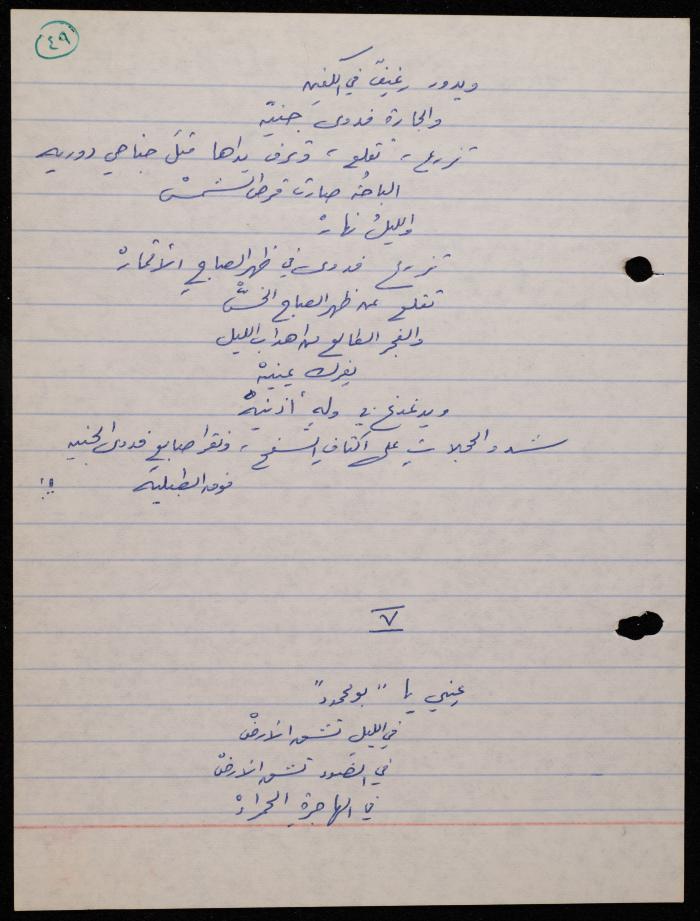 ٤٩
ويدور رغيفٌ في الكفينِ
والجارة فدوى جنيّة
تزرع، تقلع، وترف يداها مثلَ جناحي دوريه
الباحةُ صارت قرصَ الشمسْ
والليلُ نهارْ
تزرع فدوى في ظهر الصاجِ الأقمارْ
تقلع عن ظهر الصاج الخسَّ
والفجر الطالع من اهداب الليل
يفرك عينيهْ
ويدغدغ في ولهٍ أذنيهْ
شدو الحجلاتِ على اكتافِ السفح، ونقر اصابع فدوى الجنيه
فوق الطبليه !!
٧
عيني يا "بو محمود"
في الليل تشق الأرضْ
في تشق الأرضْ
في الهاجرةِ الحمراءْ